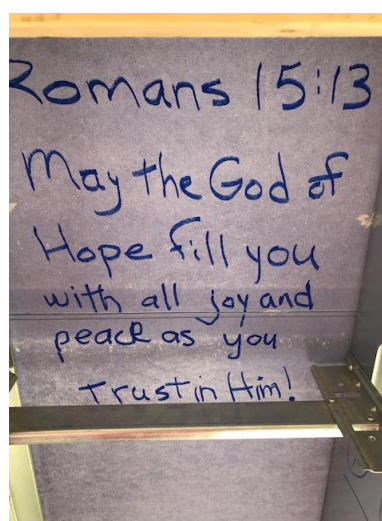 Romans 15:13
May the God of
Hope fill you
with all joy and
peace as you
Trust in Him!